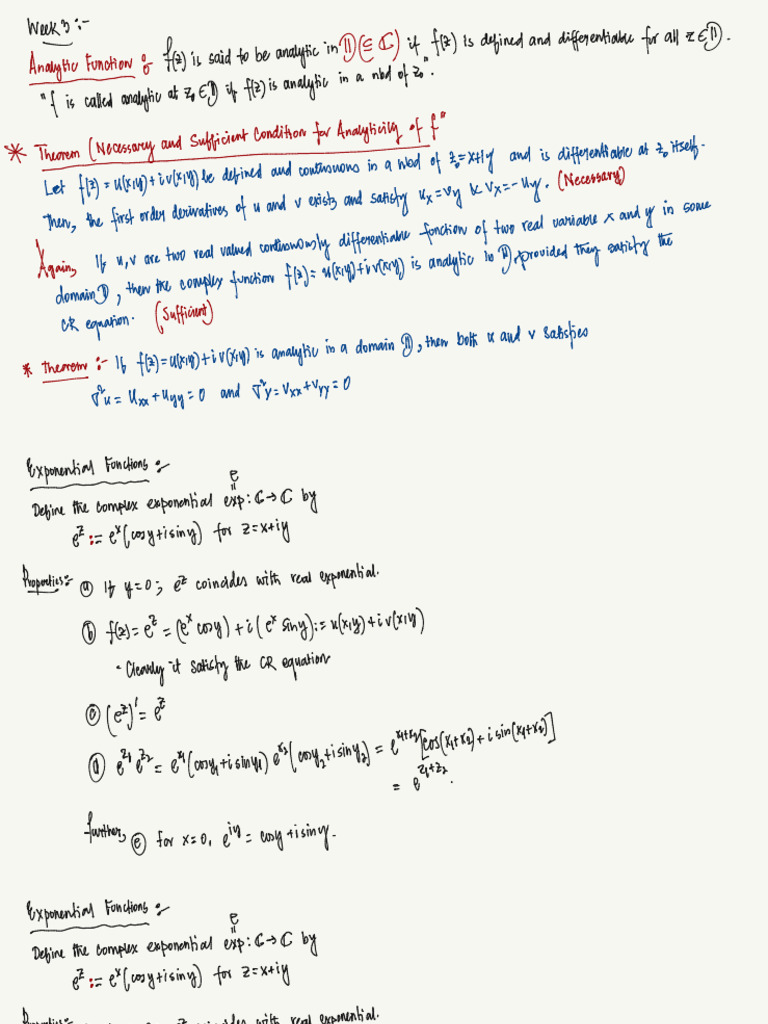 Week 3 :-
Analytic Function :- f(z) is said to be analytic in D(⊆ ℂ) if f(z) is defined and differentiable for all z∈D.
"f is called analytic at z₀∈D if f(z) is analytic in a nbd of z₀".
* Theorem (Necessary and Sufficient Condition for Analyticity of f"
Let f(z) = u(x,y)+iv(x,y) be defined and continuous in a nbd of z₀=x+iy and is differentiable at z₀ itself.
Then, the first order derivatives of u and v exists and satisfy uₓ=v_y & vₓ=-u_y. (Necessary)
Again, If u,v are two real valued continuously differentiable function of two real variable x and y in some
domain D, then the complex function f(z)=u(x,y)+iv(x,y) is analytic in D, provided they satisfy the
CR equation. (Sufficient)
* Theorem :- If f(z)=u(x,y)+iv(x,y) is analytic in a domain D, then both u and v satisfies
∇²u = uₓₓ+u_yy=0 and ∇²y=vₓₓ+v_yy=0
Exponential Functions :-
e
=
Define the complex exponential exp: ℂ→ℂ by
e^z := e^x(cosy+isiny) for z=x+iy
Properties:- (a) If y=0; e^z coincides with real exponential.
(b) f(z)=e^z = (e^x cosy)+i(e^x siny):=u(x,y)+iv(x,y)
· Clearly it satisfy the CR equation
(c) (e^z)'=e^z
(d) e^z₁ e^z₂ = e^x₁(cosy₁+isiny₁) e^x₂(cosy₂+isiny₂) = e^(x₁+x₂)[cos(x₁+x₂)+isin(x₁+x₂)]
= e^(z₁+z₂).
further, (e) for x=0, e^iy = cosy+isiny.
Exponential Functions :-
e
=
Define the complex exponential exp: ℂ→ℂ by
e^z := e^x(cosy+isiny) for z=x+iy
Properties:- e^z coincides with real exponential.